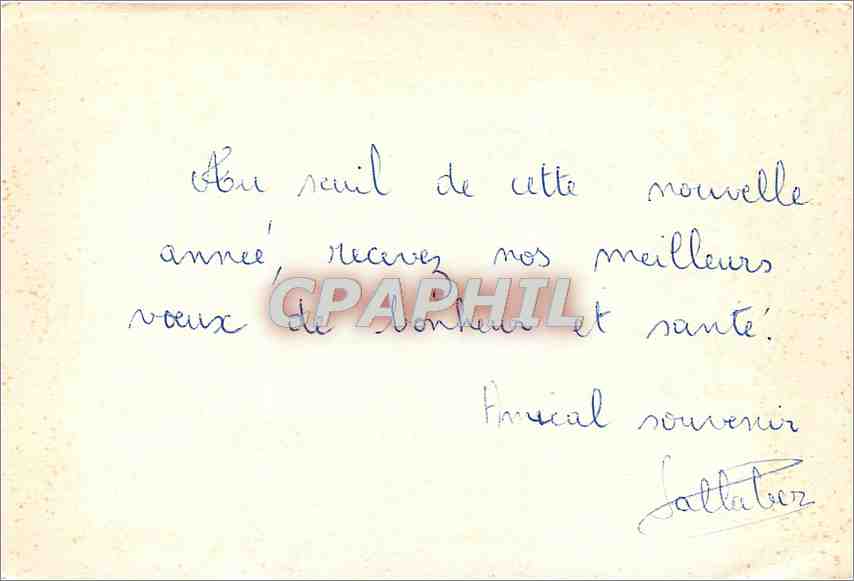 Au seuil de cette nouvelle
anneé, recevez nos meilleurs
vœux de bonheur et santé.
CPAPHIL
Amical souvenir